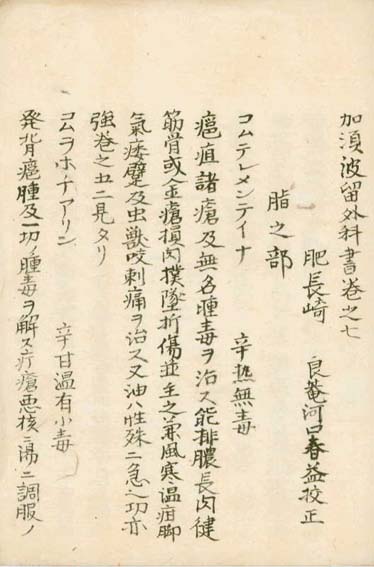 加須波留外科書巻之七
肥長崎 良菴河口春益校正
脂之部
コムテレメンテイナ 辛熱無毒
癰疽諸瘡及無名腫毒ヲ治ス能排膿長肉健
筋骨或金瘡損肉撲墜折傷並主之兼風寒温疽脚
氣痿躄及虫獣咬刺痛ヲ治ス又油ハ性殊ニ急之功亦
強巻之丑ニ見タリ
コムラホナアリン 辛甘温有小毒
発背癰腫及一切ノ腫毒ヲ解ス疔瘡悪核ニ湯ニ調服ノ